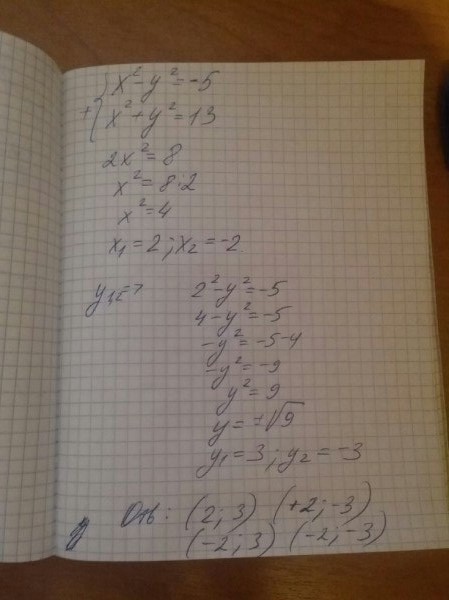 + { x² - y² = -5
x² + y² = 13
2x² = 8
x² = 8:2
x² = 4
x₁ = 2 ; x₂ = -2
y₁,₂ = ?
2² - y² = -5
4 - y² = -5
-y² = -5-4
-y² = -9
y² = 9
y = ±√9
y₁ = 3 ; y₂ = -3
Отв : (2 ; 3) (+2 ; -3)
(-2 ; 3) (-2 ; -3)